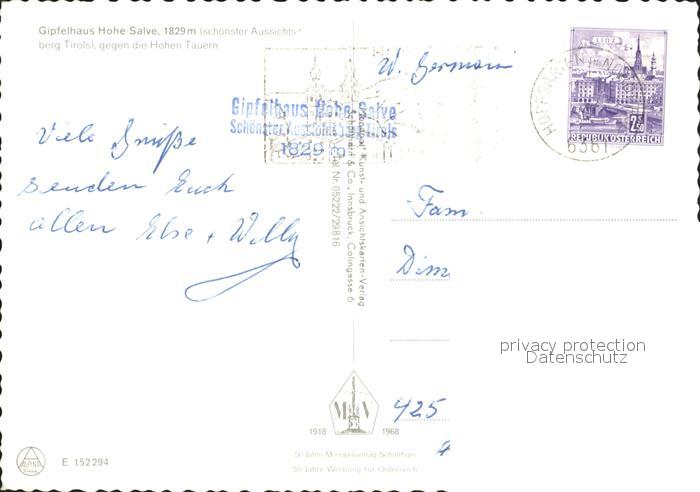 Gipfelhaus Hohe Salve, 1829 m (schönster Aussichts-
berg Tirols), gegen die Hohen Tauern
W. Germani
LINZ
2.50
REPUBLIK ÖSTERREICH
HOPFGARTEN IM
6361
Gipfelhaus Hohe Salve
Schönster Aussichtsberg Tirols
1829 m
Viele Grüße
senden Euch
allen Else + Willy
Kunst- und Ansichtskarten-Verlag
& Co., Innsbruck, Colingasse 6
Tel. Nr. 05222/29816
Fam.
Dim
privacy protection
Datenschutz
425
4
M V
1918 1968
50 Jahre Monopolverlag Schöllhorn
50 Jahre Werbung für Österreich
ALPINA
E 152294